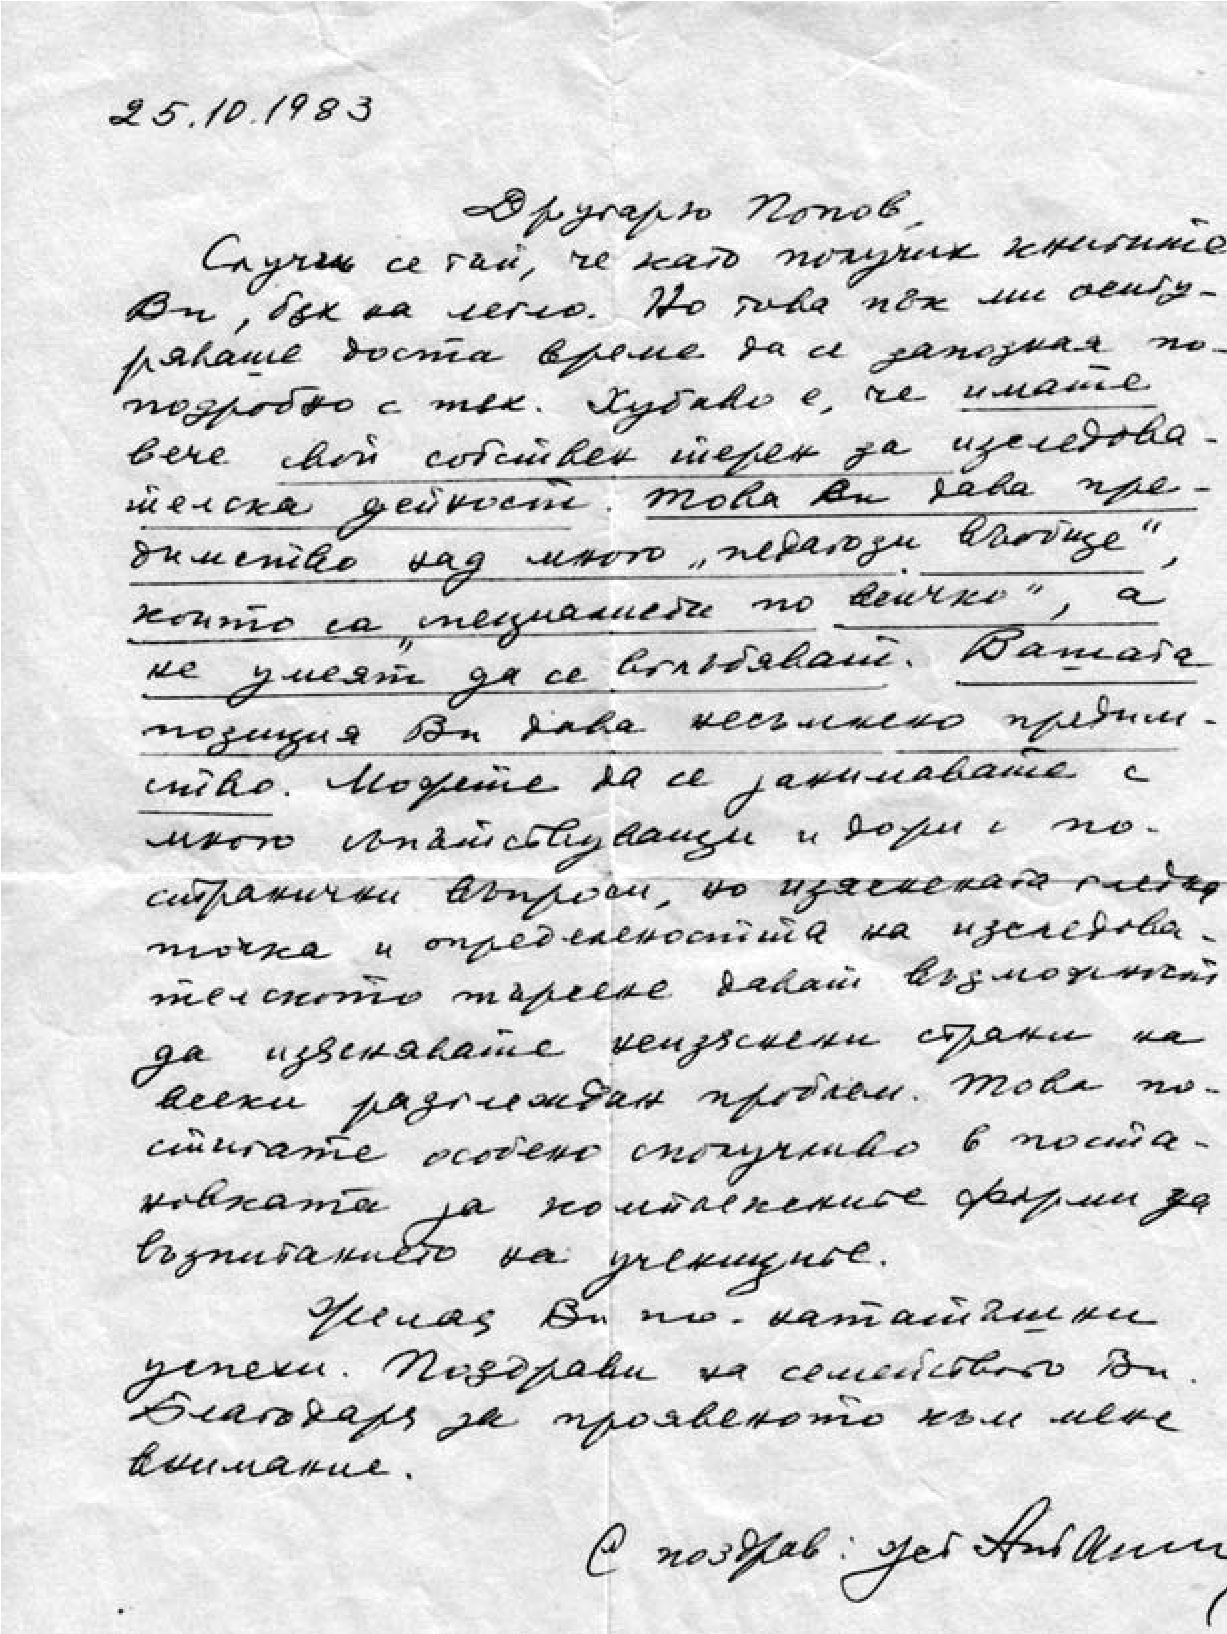 25.10.1983
Другарю Попов,
Случи се тъй, че като получих книгите
Ви, бях на легло. Но това пък ми осигу-
ряваше доста време да се запозная по-
подробно с тях. Хубаво е, че имате
вече свой собствен терен за изследова-
телска дейност. Това Ви дава пре-
димство над много „педагози въобще",
които са „специалисти по всичко", а
не умеят да се вглъбяват. Вашата
позиция Ви дава несъмнено предим-
ство. Можете да се занимавате с
много съпътствуващи и дори с по-
странични въпроси, но изяснената гледна
точка и определеността на изследова-
телското търсене дават възможност
да изяснявате неизяснени страни на
всеки разглеждан проблем. Това по-
стигате особено сполучливо в поста-
новката за комплексните форми за
възпитанието на учениците.
Желая Ви по-нататъшни
успехи. Поздрави на семейството Ви.
Благодаря за проявеното към мене
внимание.
С поздрав: